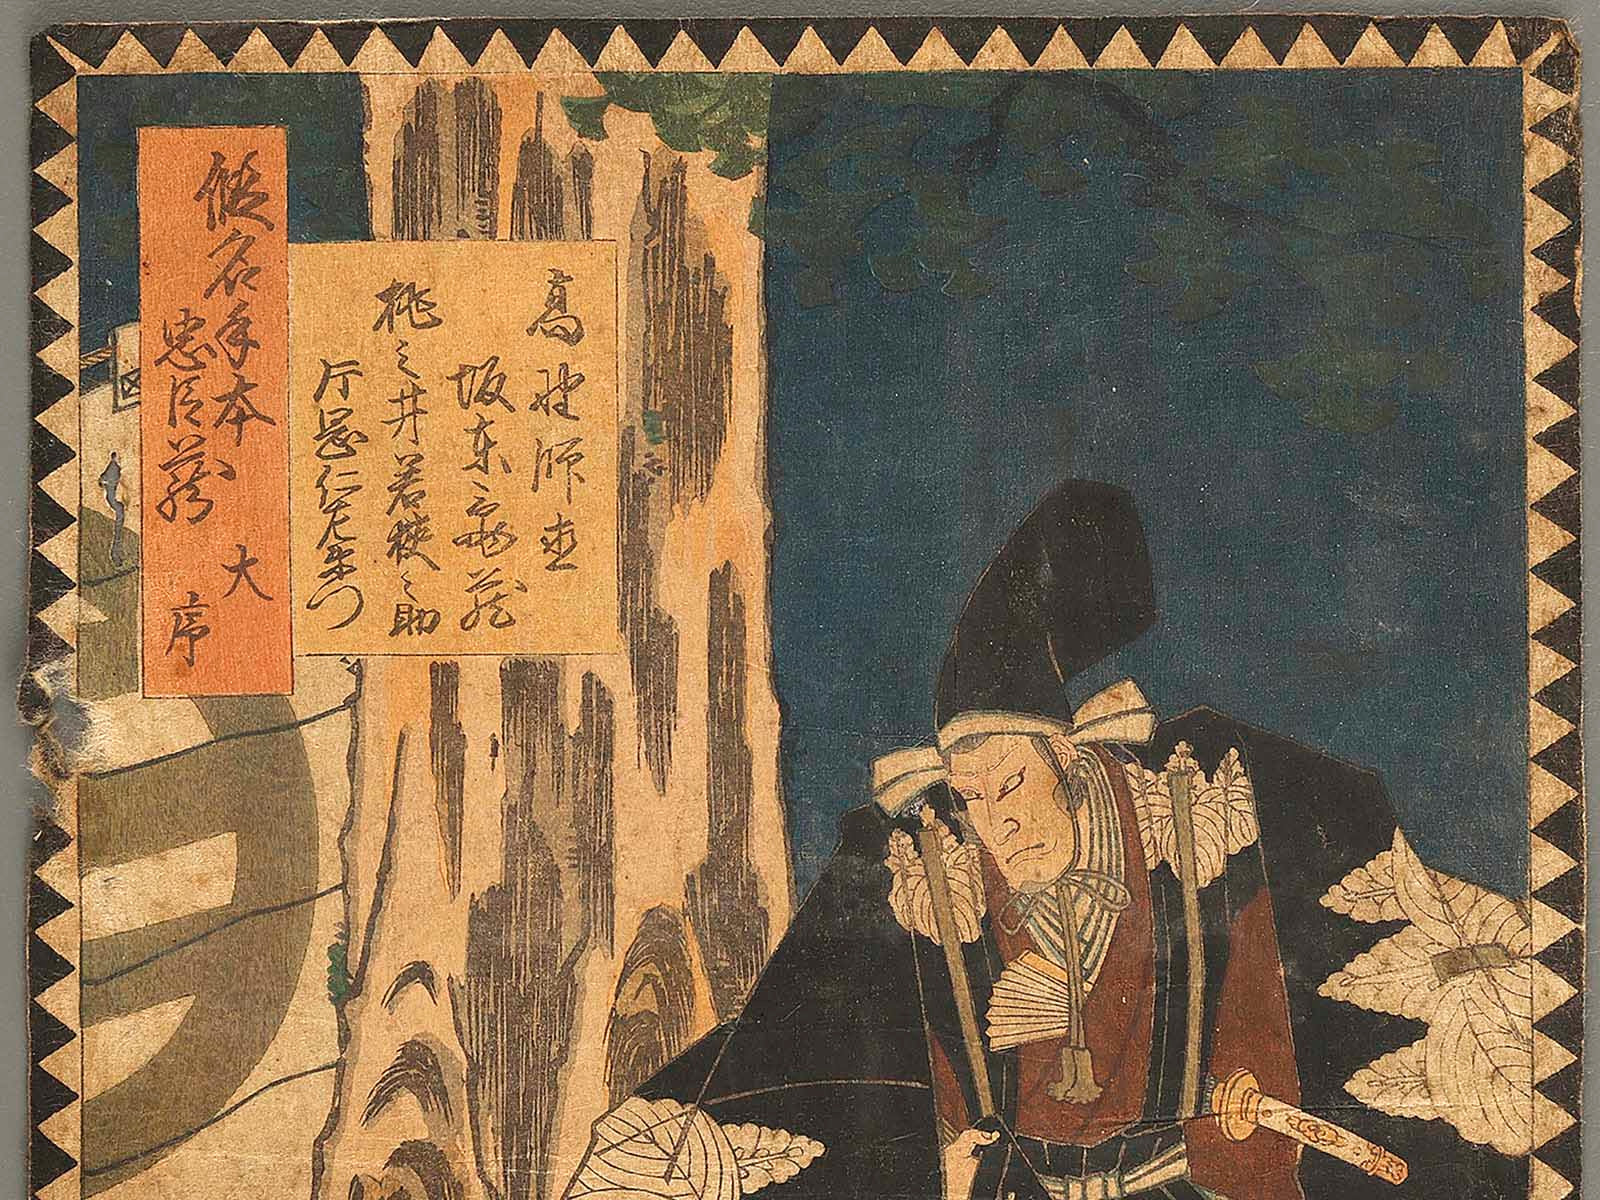 高野師直
坂東亀蔵
桃之井若狭之助
片岡仁左衛门
仮名手本
忠臣蔵
大
序